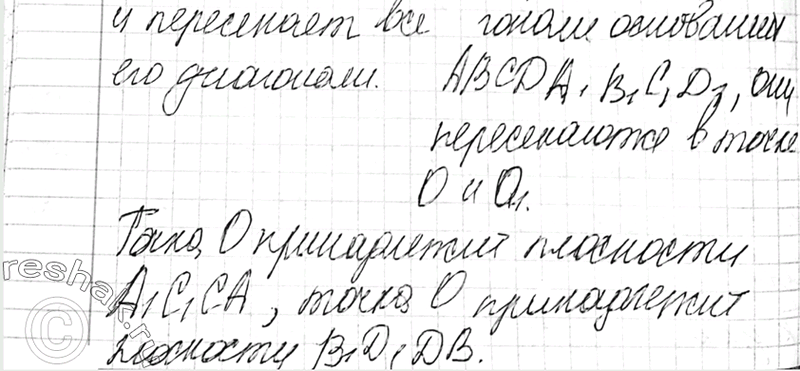 и пересекает все гонали основании
его диагонали. ABCDA₁B₁C₁D₁, они
пересекаются в точке
O и O₁.
Точка O принадлежит плоскости
A₁C₁CA, точка O принадлежит
плоскости B₁D₁DB.
reshak.ru
©